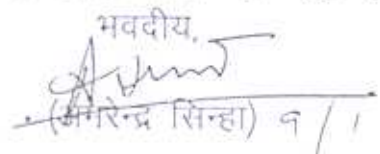 भवदीय,
(अमरेन्द्र सिन्हा) 9/1